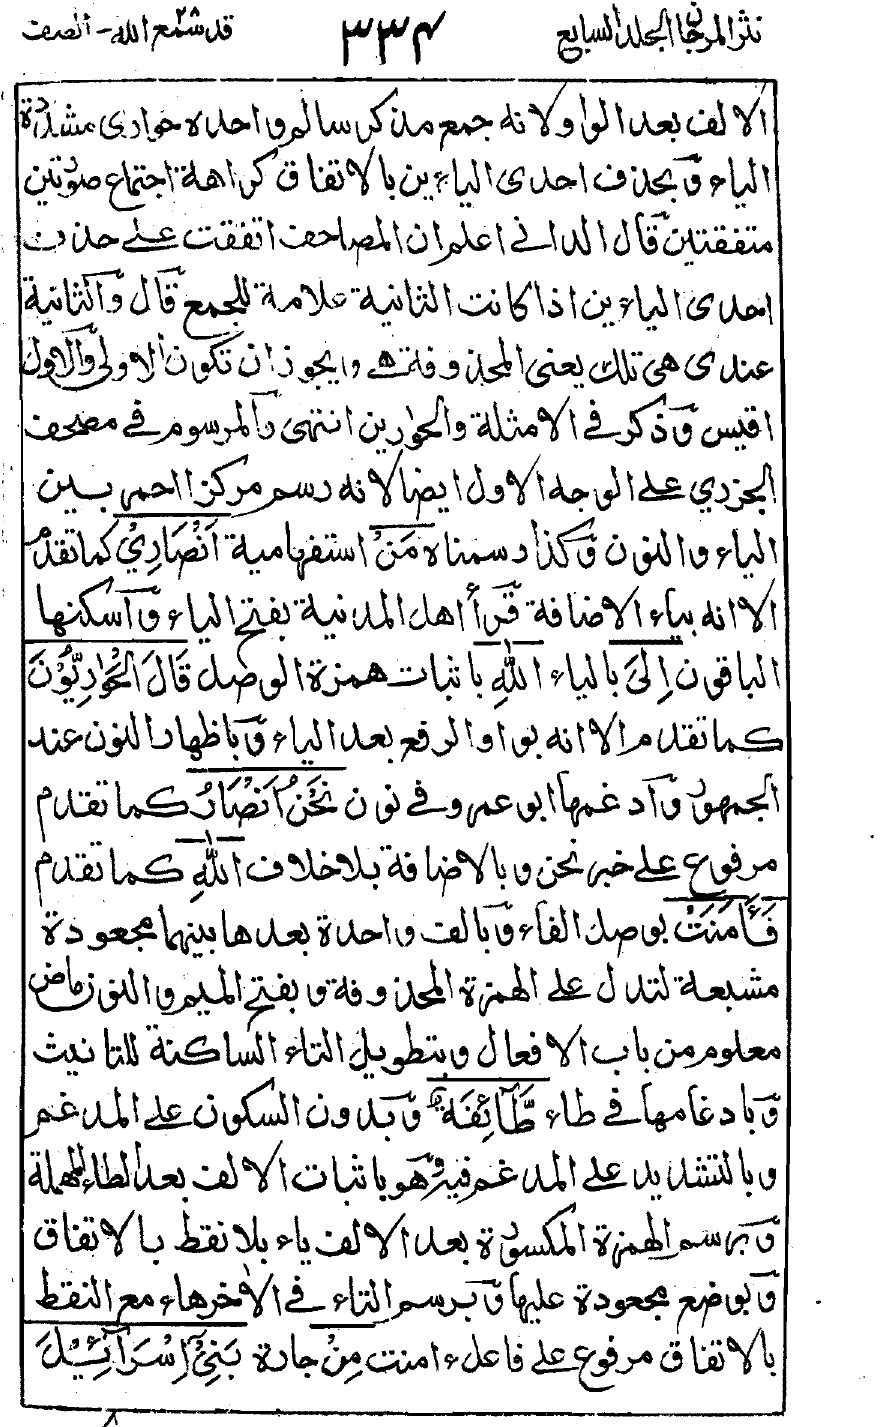 نثر المرجان الجلد السابع ٣٣٤ قد سمع الله ٢٨ - الصف
الالف بعد الواو لانه جمع مذكر سالم واحده حوارى مشددة
الياء وبحذف احدى الياءين بالاتفاق كراهة اجتماع صورتين
متفقتين قال الدانى اعلم ان المصاحف اتفقت على حذف
احدى الياءين اذا كانت الثانية علامة للجمع قال والثانية
عندى هى تلك يعنى المحذوفة هے ويجوز ان تكون الاولى والاول
اقيس وذكر فى الامثلة والحوارين انتهى والمرسوم فى مصحف
الجزرى على الوجه الاول ايضا لانه رسم مركزا احمر بين
الياء والنون وكذا رسمناه مَنْ استفهامية اَنْصَارِيْ كما تقدم
الا انه بياء الاضافة قرأ اهل المدنية بفتح الياء واسكنها
الباقون اِلَى بالياء اللهِ باثبات همزة الوصل قَالَ الْحَوَارِيُّوْنَ
كما تقدم الا انه بواو الرفع بعد الياء وباظهار النون عند
الجمهور وادغمها ابو عمرو فى نون نَحْنُ اَنْصَارُ كما تقدم
مرفوع على خبر نحن وبالاضافة بلا خلاف اللهِ كما تقدم
فَـَٔامَنَتْ بوصل الفاء وبالف واحدة بعدها بينهما مجعودة
مشبعة لتدل على الهمزة المحذوفة وبفتح الميم والنون ماض
معلوم من باب الافعال وبتطويل التاء الساكنة للتانيث
وبادغامها فى طاء طَّآئِفَةٌ وبدون السكون على المدغم
وبالتشديد على المدغم فيه وهو باثبات الالف بعد الطاء المهملة
وبرسم الهمزة المكسورة بعد الالف ياء بلا نقط بالاتفاق
وبوضع مجعودة عليها وبرسم التاء فى الاٰخر هاء مع النقط
بالاتفاق مرفوع على فاعل ءامنت مِنْ جارة بَنِيْٓ اِسْرَآئِيْلَ